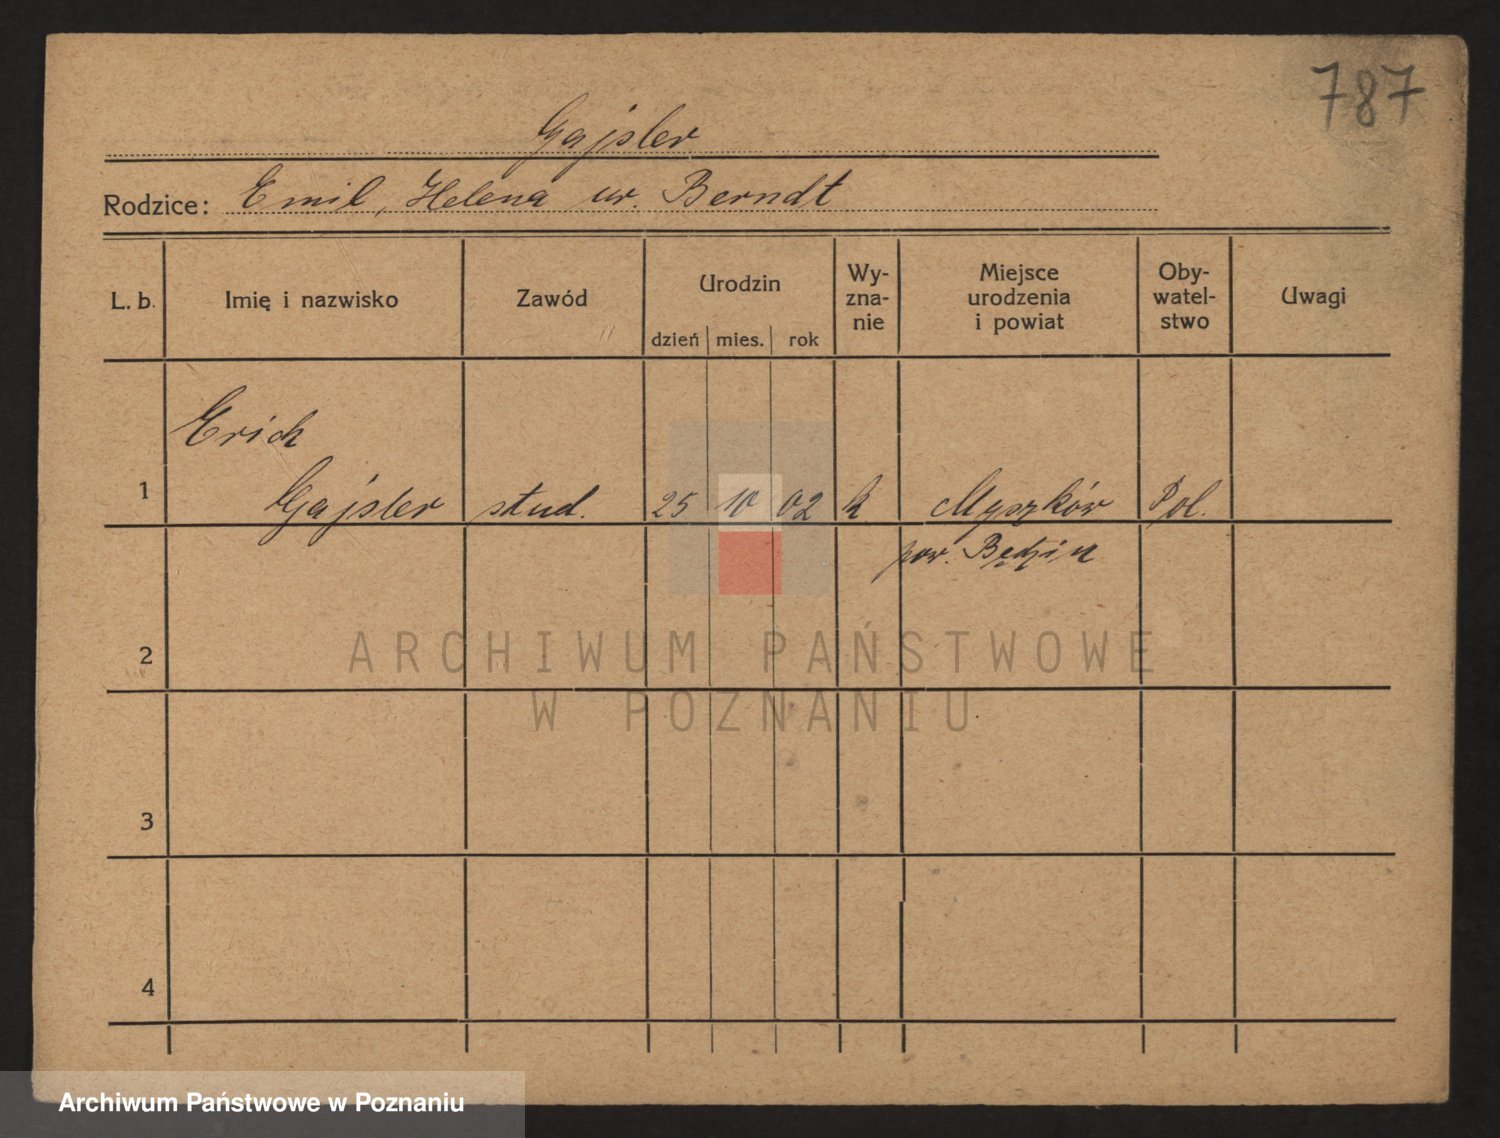 787
Gajsler
Rodzice: Emil, Helena ur. Berndt
L. b. Imię i nazwisko Zawód Urodzin dzień mies. rok Wy-zna-nie Miejsce urodzenia i powiat Oby-watel-stwo Uwagi
Erich
1 Gajsler stud. 25 10 02 k Myszków Pol.
pow. Będzin
2
ARCHIWUM PAŃSTWOWE
W POZNANIU
3
4
Archiwum Państwowe w Poznaniu